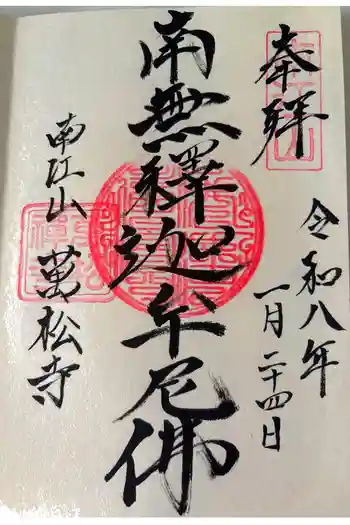 奉拜
令和八年
一月二十四日
南無釋迦牟尼佛
南江山
萬松寺